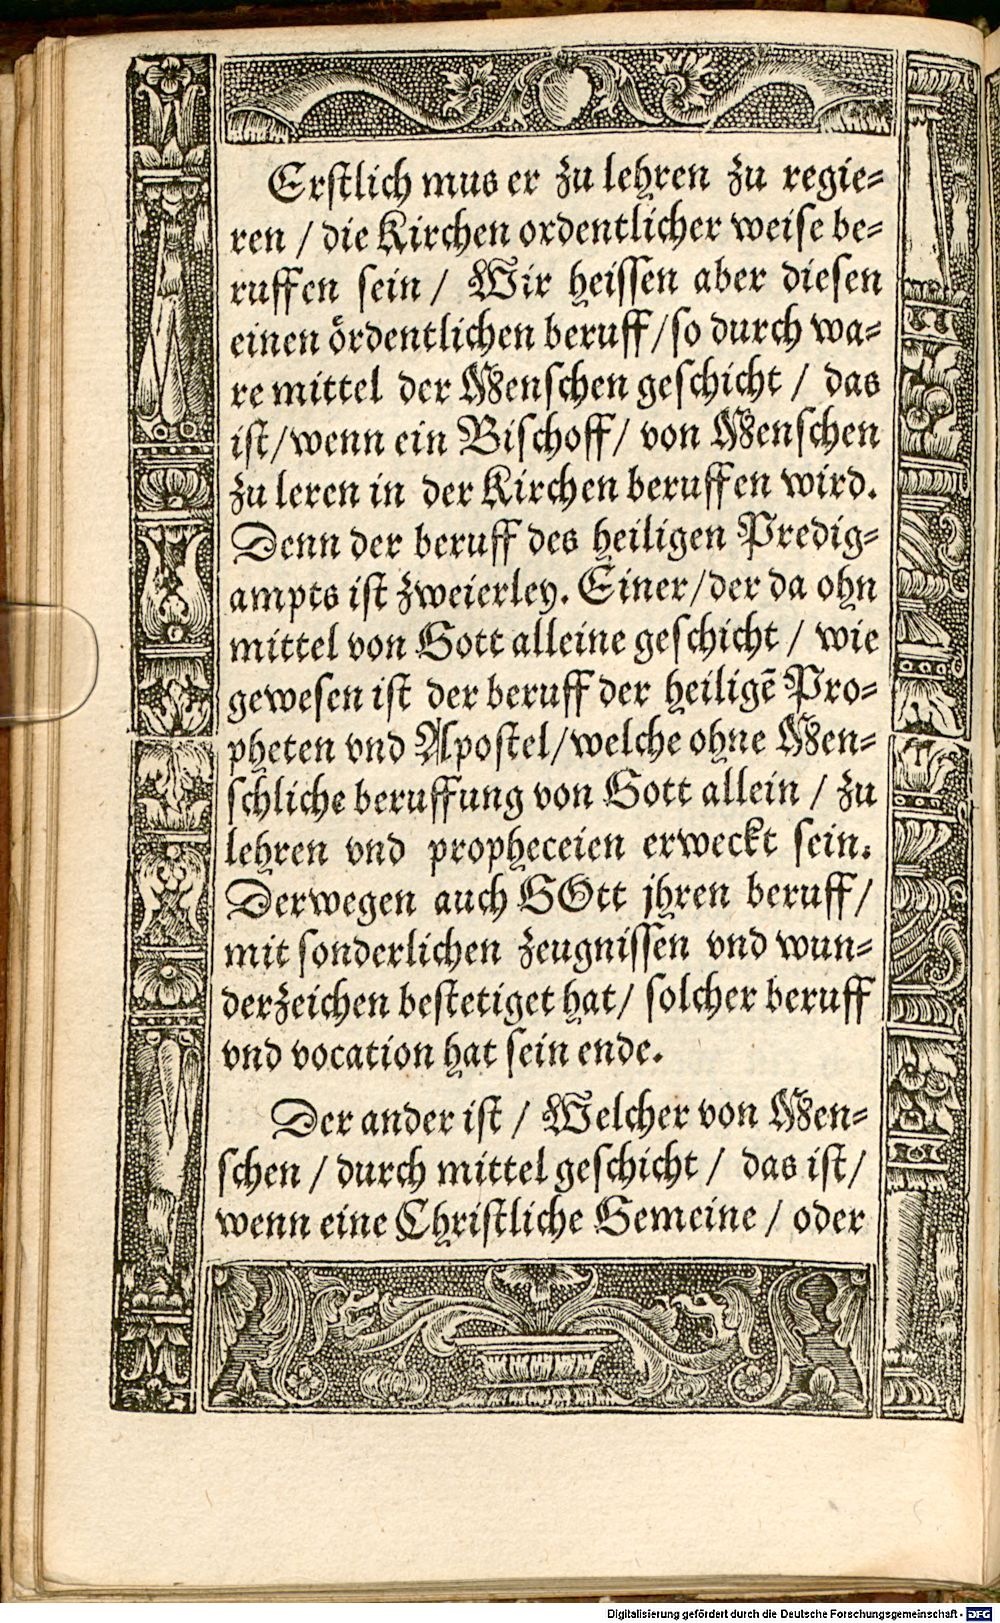 Erstlich mus er zu lehren zu regie=
ren / die Kirchen ordentlicher weise be=
ruffen sein / Wir heissen aber diesen
einen ördentlichen beruff / so durch wa=
re mittel der Menschen geschicht / das
ist / wenn ein Bischoff / von Menschen
zu leren in der Kirchen beruffen wird.
Denn der beruff des heiligen Predig=
ampts ist zweierley. Einer / der da ohn
mittel von Gott alleine geschicht / wie
gewesen ist der beruff der heiligẽ Pro=
pheten vnd Apostel / welche ohne Men=
schliche beruffung von Gott allein / zu
lehren vnd propheceien erweckt sein.
Derwegen auch GOtt jhren beruff /
mit sonderlichen zeugnissen vnd wun=
derzeichen bestetiget hat / solcher beruff
vnd vocation hat sein ende.
Der ander ist / Welcher von Men=
schen / durch mittel geschicht / das ist /
wenn eine Christliche Gemeine / oder
Digitalisierung gefördert durch die Deutsche Forschungsgemeinschaft - DFG